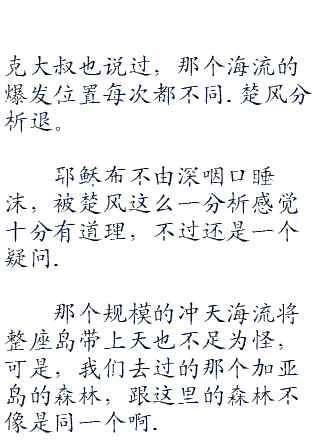 克大叔也说过，那个海流的
爆发位置每次都不同.楚风分
析退。
耶稣布不由深咽口睡
沫，被楚风这么一分析感觉
十分有道理，不过还是一个
疑问.
那个规模的冲天海流将
整座岛带上天也不足为怪，
可是，我们去过的那个加亚
岛的森林，跟这里的森林不
像是同一个啊.